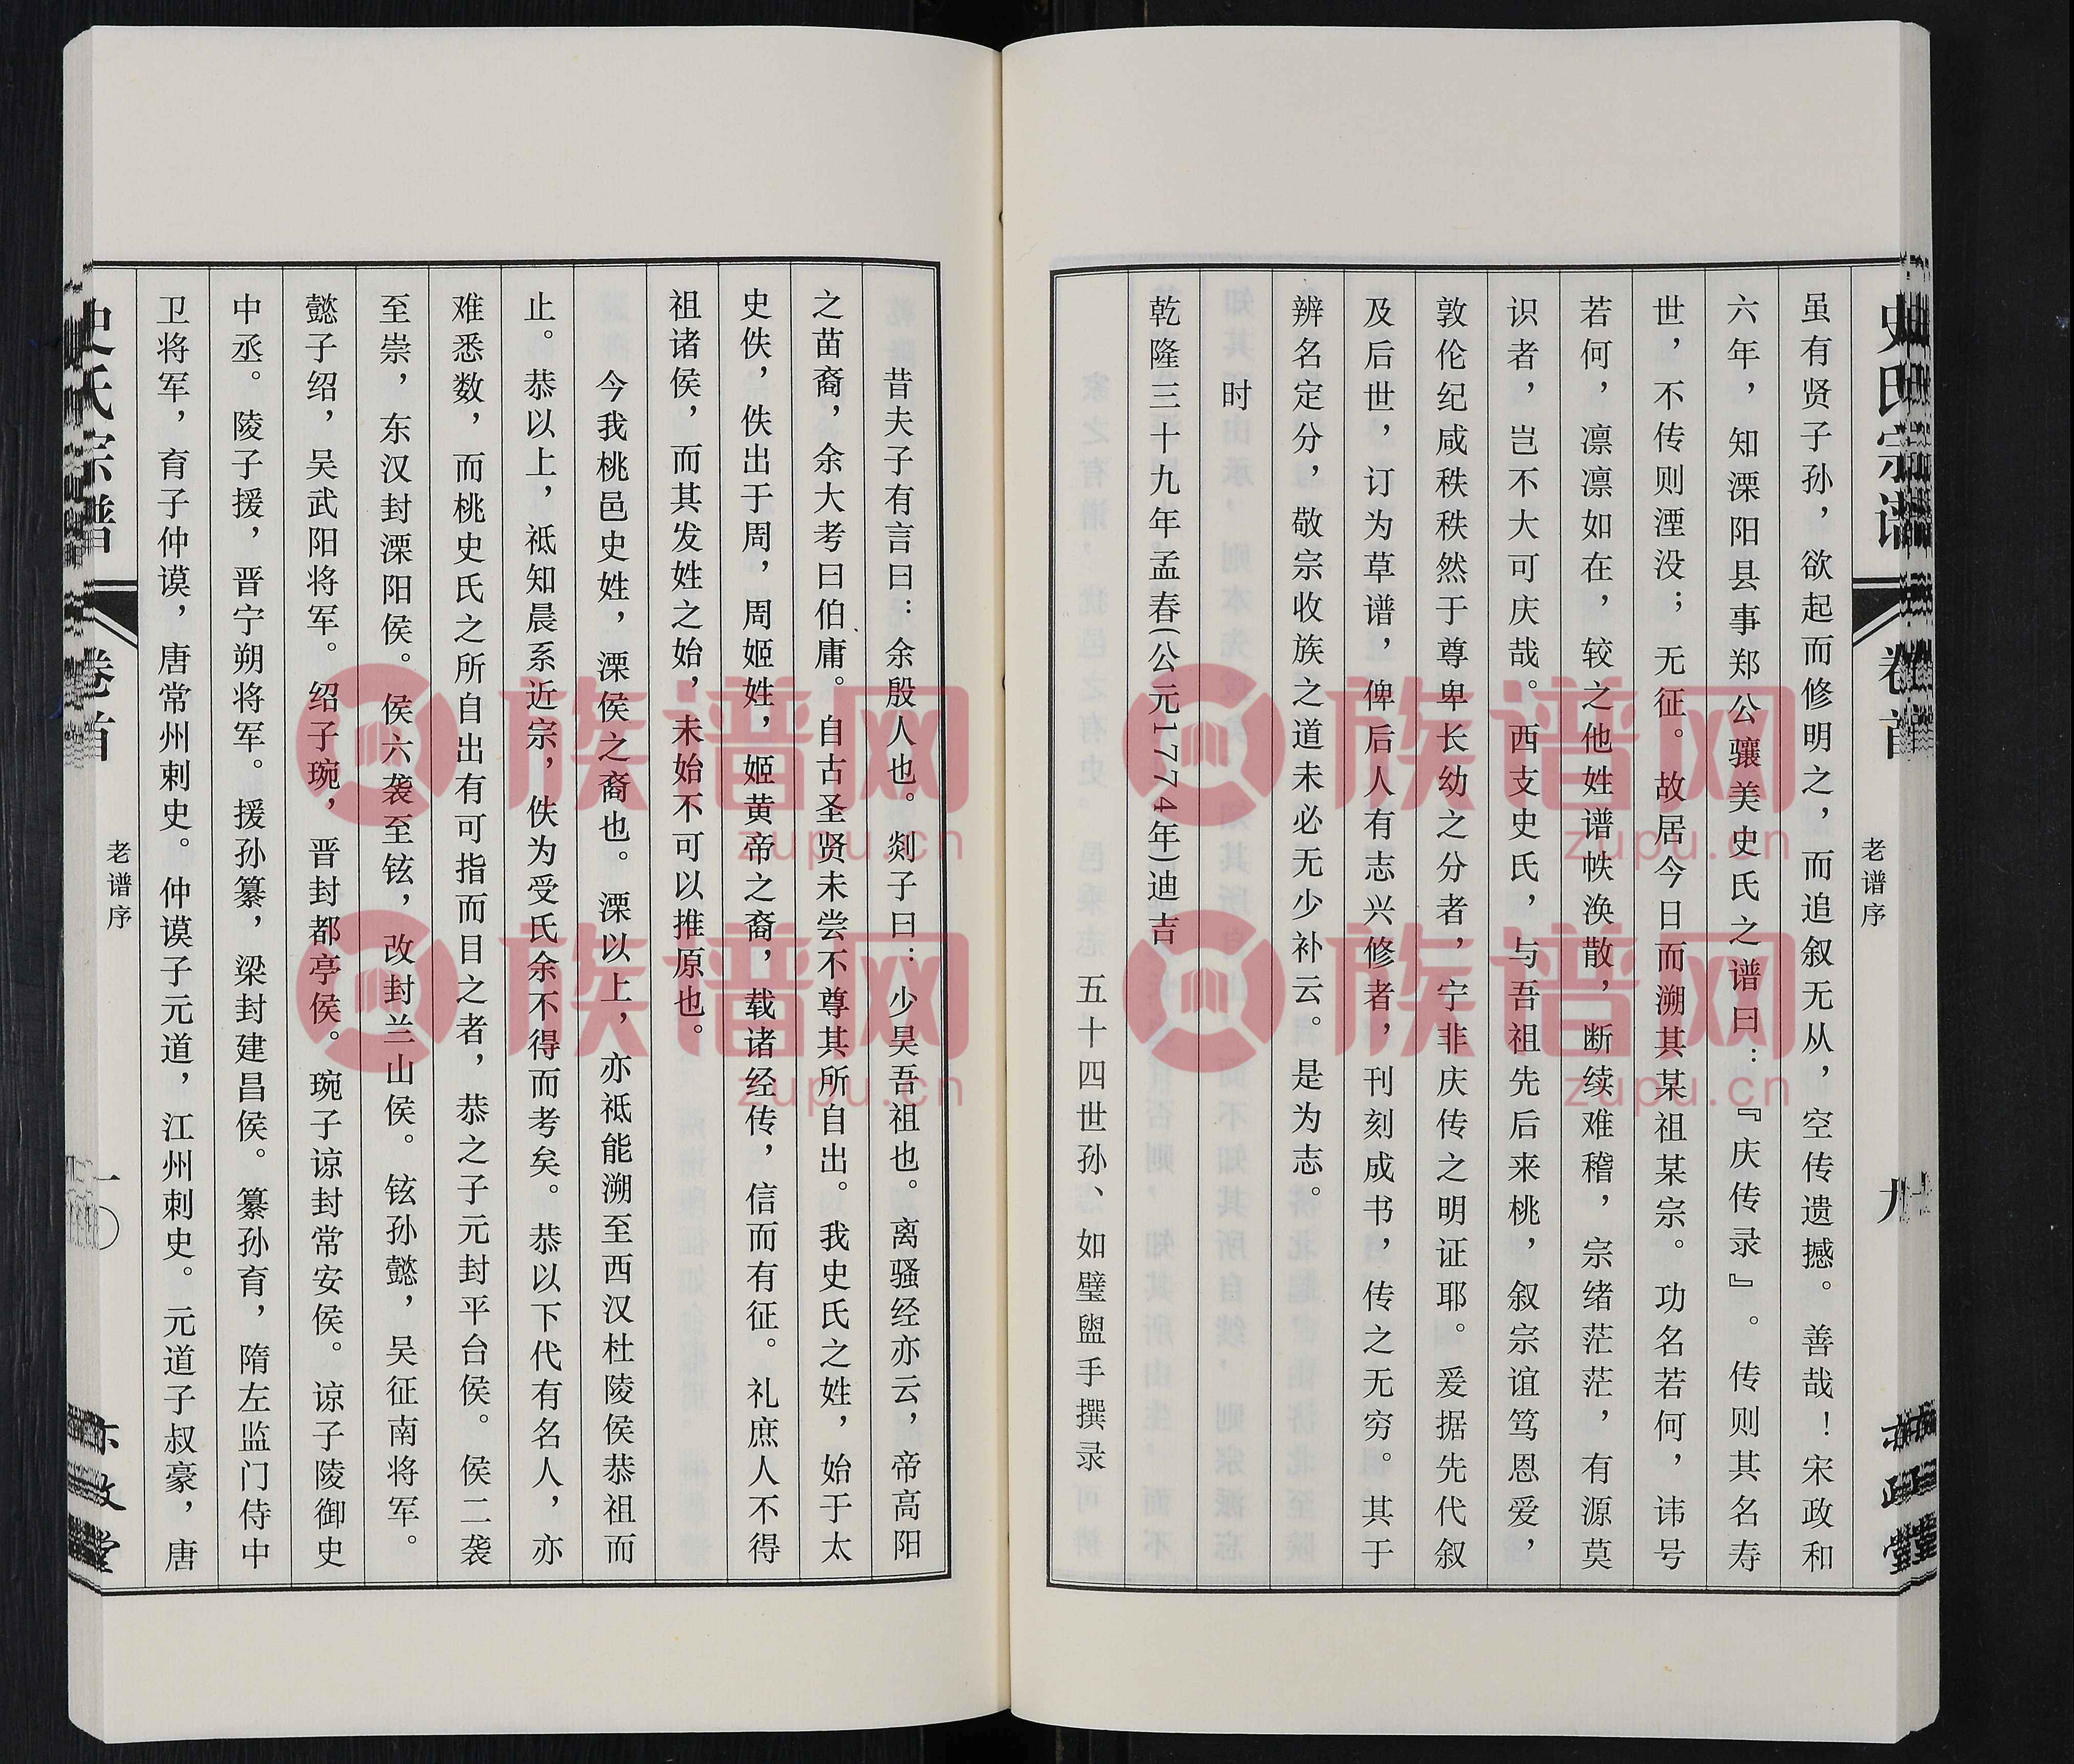 史氏宗谱
卷首
老谱序
九
虽有贤子孙，欲起而修明之，而追叙无从，空传遗撼。善哉！宋政和
六年，知溧阳县事郑公骧美史氏之谱曰：『庆传录』。传则其名寿
世，不传则湮没；无征。故居今日而溯其某祖某宗。功名若何，讳号
若何，凛凛如在，较之他姓谱帙涣散，断续难稽，宗绪茫茫，有源莫
识者，岂不大可庆哉。西支史氏，与吾祖先后来桃，叙宗谊笃恩爱，
敦伦纪咸秩秩然于尊卑长幼之分者，宁非庆传之明证耶。爰据先代叙
及后世，订为草谱，俾后人有志兴修者，刊刻成书，传之无穷。其于
辨名定分，敬宗收族之道未必无少补云。是为志。
时
乾隆三十九年孟春(公元1774年)迪吉
五十四世孙、如璧盥手撰录
昔夫子有言曰：余殷人也。郯子曰：少昊吾祖也。离骚经亦云，帝高阳
之苗裔，余大考曰伯庸。自古圣贤未尝不尊其所自出。我史氏之姓，始于太
史佚，佚出于周，周姬姓，姬黄帝之裔，载诸经传，信而有征。礼庶人不得
祖诸侯，而其发姓之始，未始不可以推原也。
今我桃邑史姓，溧侯之裔也。溧以上，亦祗能溯至西汉杜陵侯恭祖而
止。恭以上，祗知晨系近宗，佚为受氏余不得而考矣。恭以下代有名人，亦
难悉数，而桃史氏之所自出有可指而目之者，恭之子元封平台侯。侯二袭
至崇，东汉封溧阳侯。侯六袭至铉，改封兰山侯。铉孙懿，吴征南将军。
懿子绍，吴武阳将军。绍子琬，晋封都亭侯。琬子谅封常安侯。谅子陵御史
中丞。陵子援，晋宁朔将军。援孙纂，梁封建昌侯。纂孙育，隋左监门侍中
卫将军，育子仲谟，唐常州刺史。仲谟子元道，江州刺史。元道子叔豪，唐
史氏宗谱
卷首
老谱序
一〇
族谱网
zupu.cn
族谱网
zupu.cn
族谱网
zupu.cn
族谱网
zupu.cn